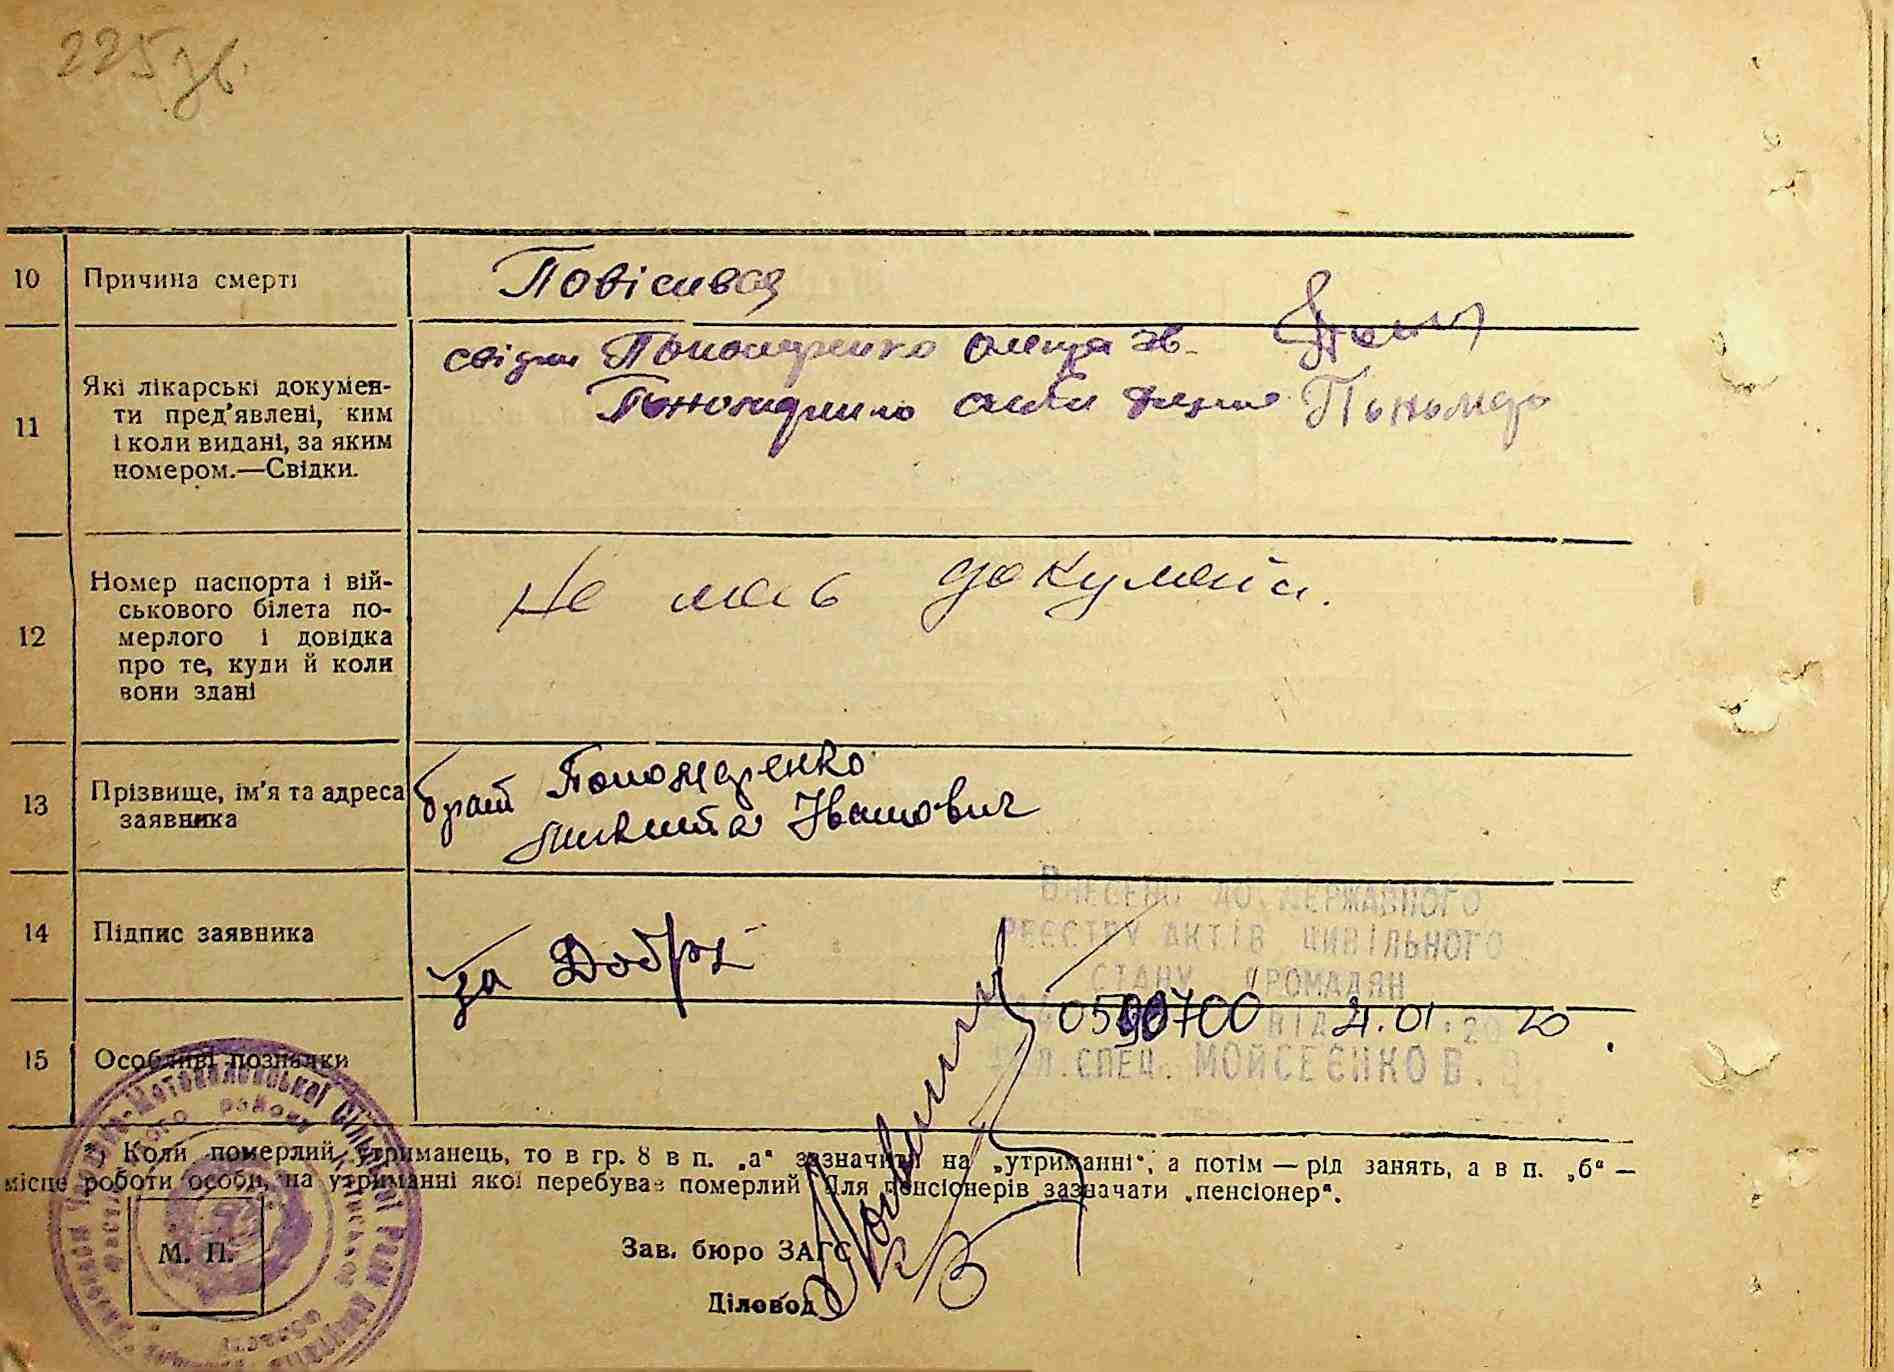 225зв.
10 Причина смерті Повісився
свідки Пономаренко
11 Які лікарські докумен-
ти пред'явлені, ким
і коли видані, за яким
номером.—Свідки.
Пономаренко
12 Номер паспорта і вій-
ськового білета по-
мерлого і довідка
про те, куди й коли
вони здані
Не має документа.
13 Прізвище, ім'я та адреса
заявника
брат Пономаренко
Микита Іванович
14 Підпис заявника
за Добрі
ВНЕСЕНО ДО ДЕРЖАВНОГО
РЕЄСТРУ АКТІВ ЦИВІЛЬНОГО
СТАНУ ГРОМАДЯН
ВІД 21.01.2020
15 Особливі позначки
СПЕЦ. МОЙСЕЄНКО В.
Коли померлий утриманець, то в гр. 8 в п. „а“ зазначити на „утриманні“, а потім — рід занять, а в п. „б“ —
місце роботи особи, на утриманні якої перебував померлий Для пенсіонерів зазначати „пенсіонер“.
М. П.
Зав. бюро ЗАГС
Діловод